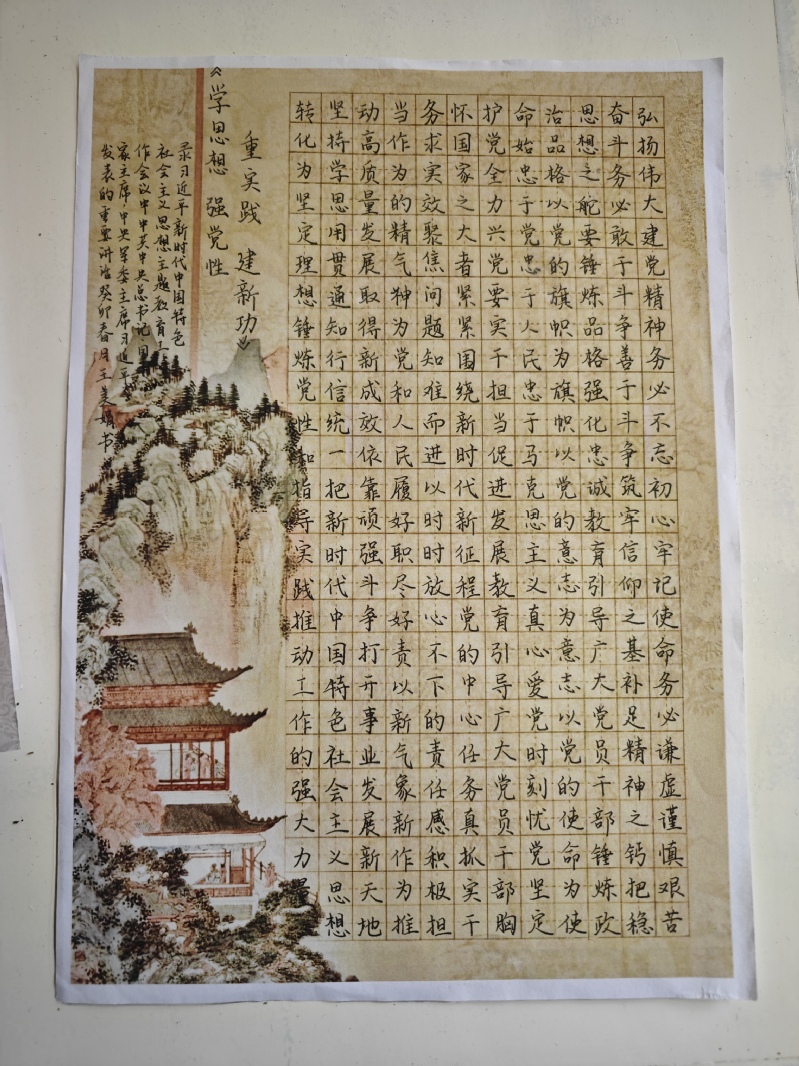 弘扬伟大建党精神务必不忘初心牢记使命务必谦虚谨慎艰苦
奋斗务必敢于斗争善于斗争筑牢信仰之基补足精神之钙把稳
思想之舵要锤炼品格强化忠诚教育引导广大党员干部锤炼政
治品格以党的旗帜为旗帜以党的意志为意志以党的使命为使
命始忠于党忠于人民忠于马克思主义真心爱党时刻忧党坚定
护党全力兴党要实干担当促进发展教育引导广大党员干部胸
怀国家之大者紧紧围绕新时代新征程党的中心任务真抓实干
务求实效聚焦问题知难而进以时时放心不下的责任感积极担
当作为的精气神为党和人民履好职尽好责以新气象新作为推
动高质量发展取得新成效依靠顽强斗争打开事业发展新天地
坚持学思用贯通知行信统一把新时代中国特色社会主义思想
转化为坚定理想锤炼党性和指导实践推动工作的强大力量
《学思想 强党性
重实践 建新功》
录习近平新时代中国特色
社会主义思想主题教育工
作会议中中共中央总书记、国
家主席、中央军委主席习近平
发表的重要讲话癸卯春月王美娟书